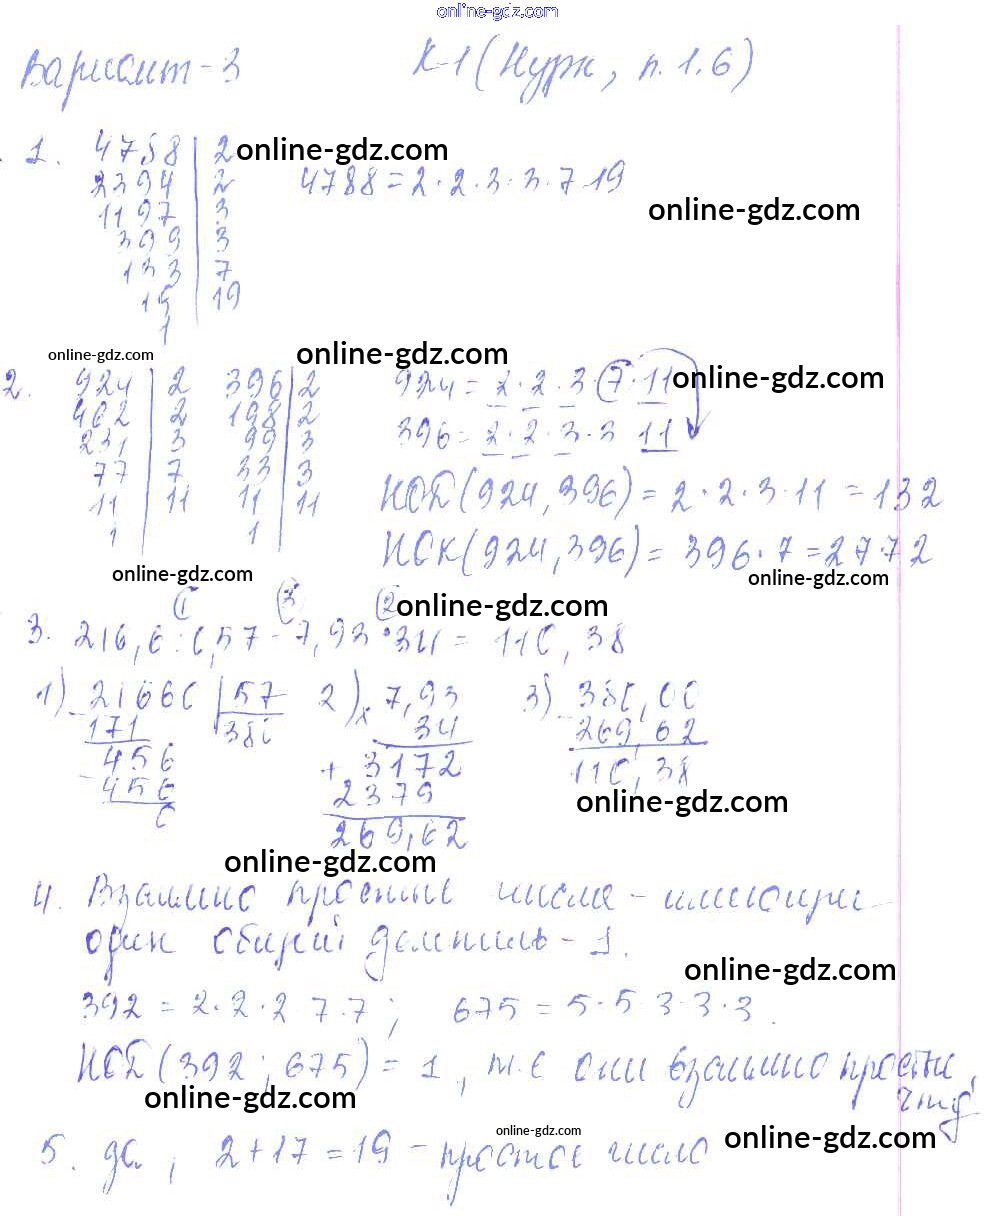 online-gdz.com
Вариант-3 К-1 (Нурк, п. 1.6)
1. 4788 | 2 online-gdz.com
2394 | 2 4788 = 2 · 2 · 3 · 3 · 7 · 19
1197 | 3 online-gdz.com
399 | 3
133 | 7
19 | 19
1
online-gdz.com online-gdz.com
2. 924 | 2 396 | 2 924 = 2 · 2 · 3 · 7 · 11 online-gdz.com
462 | 2 198 | 2 396 = 2 · 2 · 3 · 3 11
231 | 3 99 | 3
77 | 7 33 | 3 НОД (924, 396) = 2 · 2 · 3 · 11 = 132
11 | 11 11 | 11
1 1 НОК (924, 396) = 396 · 7 = 2772
online-gdz.com online-gdz.com
1 3 2 online-gdz.com
3. 216,6 : 0,57 - 7,93 · 34 = 110,38
1) 21660 | 57 2) 7,93 3) 380,00
- 171 380 × 34 - 269,62
456 + 3172 110,38
- 456 2379 online-gdz.com
0 269,62
online-gdz.com
4. Взаимно простые числа - имеющие
один общий делитель - 1.
online-gdz.com
392 = 2 · 2 · 2 7 · 7 ; 675 = 5 · 5 · 3 · 3 · 3.
НОД (392 ; 675) = 1, т.е они взаимно просты,
online-gdz.com чтд
online-gdz.com online-gdz.com
5. да, 2 + 17 = 19 - простое число